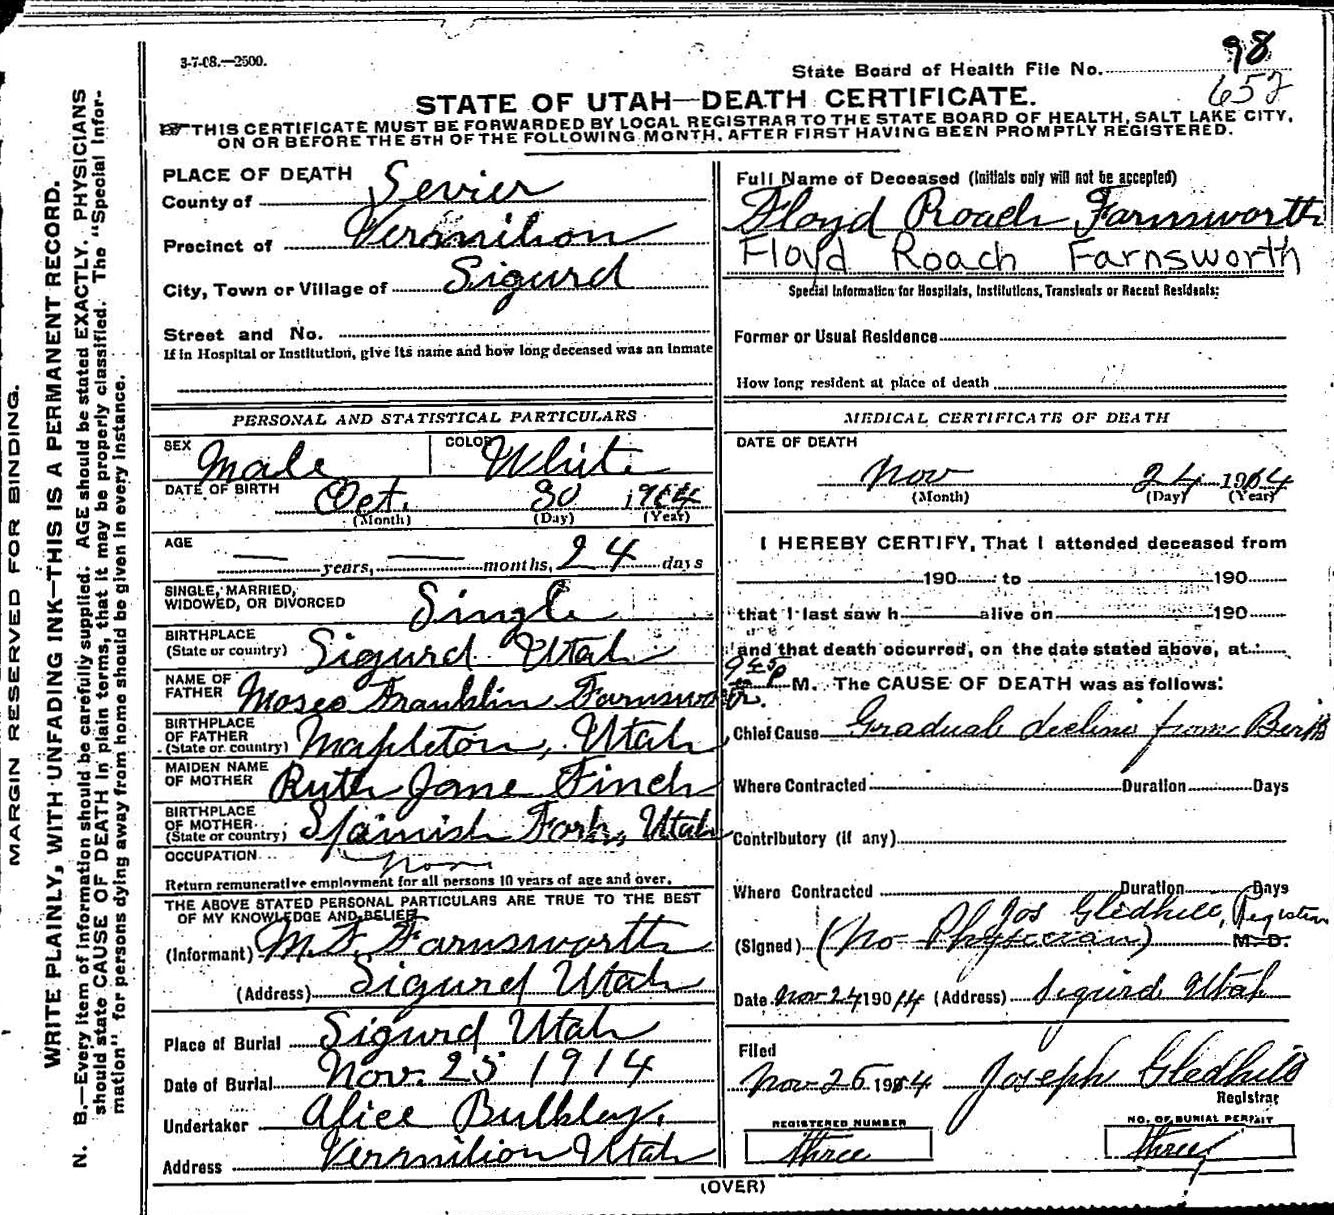 3-7-08.—2500.
98
State Board of Health File No.
652
STATE OF UTAH—DEATH CERTIFICATE.
THIS CERTIFICATE MUST BE FORWARDED BY LOCAL REGISTRAR TO THE STATE BOARD OF HEALTH, SALT LAKE CITY,
ON OR BEFORE THE 5TH OF THE FOLLOWING MONTH, AFTER FIRST HAVING BEEN PROMPTLY REGISTERED.
MARGIN RESERVED FOR BINDING.
WRITE PLAINLY, WITH UNFADING INK—THIS IS A PERMANENT RECORD.
N. B.—Every item of information should be carefully supplied. AGE should be stated EXACTLY. PHYSICIANS
should state CAUSE OF DEATH in plain terms, that it may be properly classified. The "Special Infor-
mation" for persons dying away from home should be given in every instance.
PLACE OF DEATH
County of Sevier
Precinct of Vermilion
City, Town or Village of Sigurd
Street and No.
If in Hospital or Institution, give its name and how long deceased was an inmate
PERSONAL AND STATISTICAL PARTICULARS
SEX Male COLOR White
DATE OF BIRTH Oct. 30 1914
(Month) (Day) (Year)
AGE
— years, — months, 24 days
SINGLE, MARRIED,
WIDOWED, OR DIVORCED Single
BIRTHPLACE
(State or country) Sigurd Utah
NAME OF
FATHER Moses Franklin Farnsworth.
BIRTHPLACE
OF FATHER
(State or country) Mapleton, Utah
MAIDEN NAME
OF MOTHER Ruth Jane Finch
BIRTHPLACE
OF MOTHER
(State or country) Spanish Fork, Utah
OCCUPATION None
Return remunerative employment for all persons 10 years of age and over.
THE ABOVE STATED PERSONAL PARTICULARS ARE TRUE TO THE BEST
OF MY KNOWLEDGE AND BELIEF
(Informant) M. F. Farnsworth
(Address) Sigurd Utah
Place of Burial Sigurd Utah
Date of Burial Nov. 25 1914
Undertaker Alice Bulkley.
Address Vermilion Utah
Full Name of Deceased (Initials only will not be accepted)
Floyd Roach Farnsworth
Floyd Roach Farnsworth
Special Information for Hospitals, Institutions, Transients or Recent Residents:
Former or Usual Residence
How long resident at place of death
MEDICAL CERTIFICATE OF DEATH
DATE OF DEATH
Nov 24 1914
(Month) (Day) (Year)
I HEREBY CERTIFY, That I attended deceased from
190 to 190
that I last saw h alive on 190
and that death occurred, on the date stated above, at
M. The CAUSE OF DEATH was as follows:
Chief Cause Gradual decline from Birth
Where Contracted Duration Days
Contributory (if any)
Where Contracted Duration Days
Jos Gledhill, Registrar
(Signed) (No Physician) M. D.
Date Nov 24 1914 (Address) Sigurd Utah
Filed
Nov 26 1914 Joseph Gledhill
Registrar
REGISTERED NUMBER
three
NO. OF BURIAL PERMIT
three
(OVER)